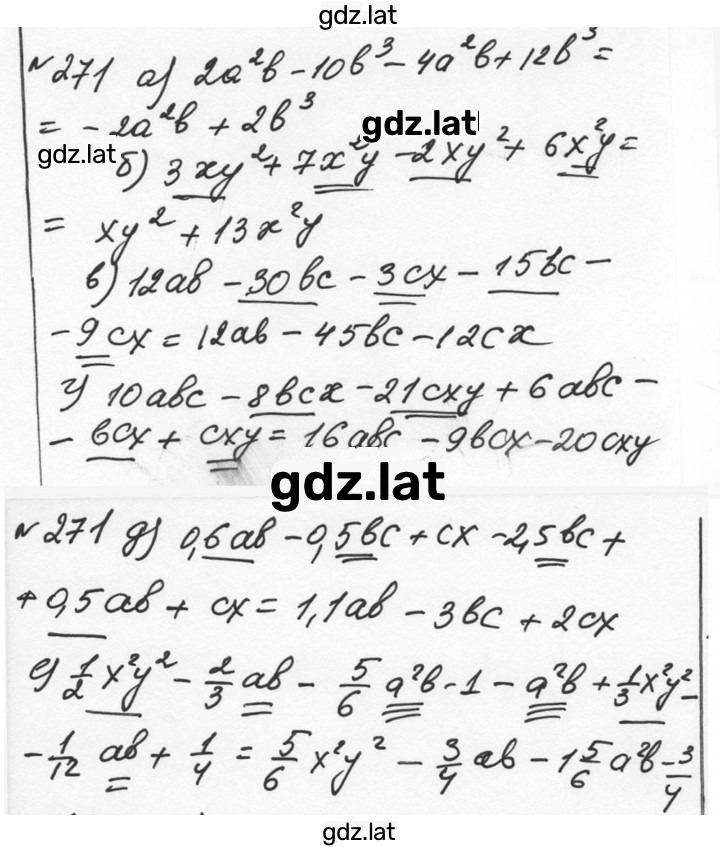 gdz.lat
№271 а) 2a²b - 10b³ - 4a²b + 12b³ =
= -2a²b + 2b³
gdz.lat
gdz.lat
б) 3xy² + 7x²y - 2xy² + 6x²y =
= xy² + 13x²y
в) 12ab - 30bc - 3cx - 15bc -
- 9cx = 12ab - 45bc - 12cx
г) 10abc - 8bcx - 21cxy + 6abc -
- bcx + cxy = 16abc - 9bcx - 20cxy
gdz.lat
№271 д) 0,6ab - 0,5bc + cx - 2,5bc +
+ 0,5ab + cx = 1,1ab - 3bc + 2cx
е) 1/2 x²y² - 2/3 ab - 5/6 a²b - 1 - a²b + 1/3 x²y² -
- 1/12 ab + 1/4 = 5/6 x²y² - 3/4 ab - 1 5/6 a²b - 3/4
gdz.lat